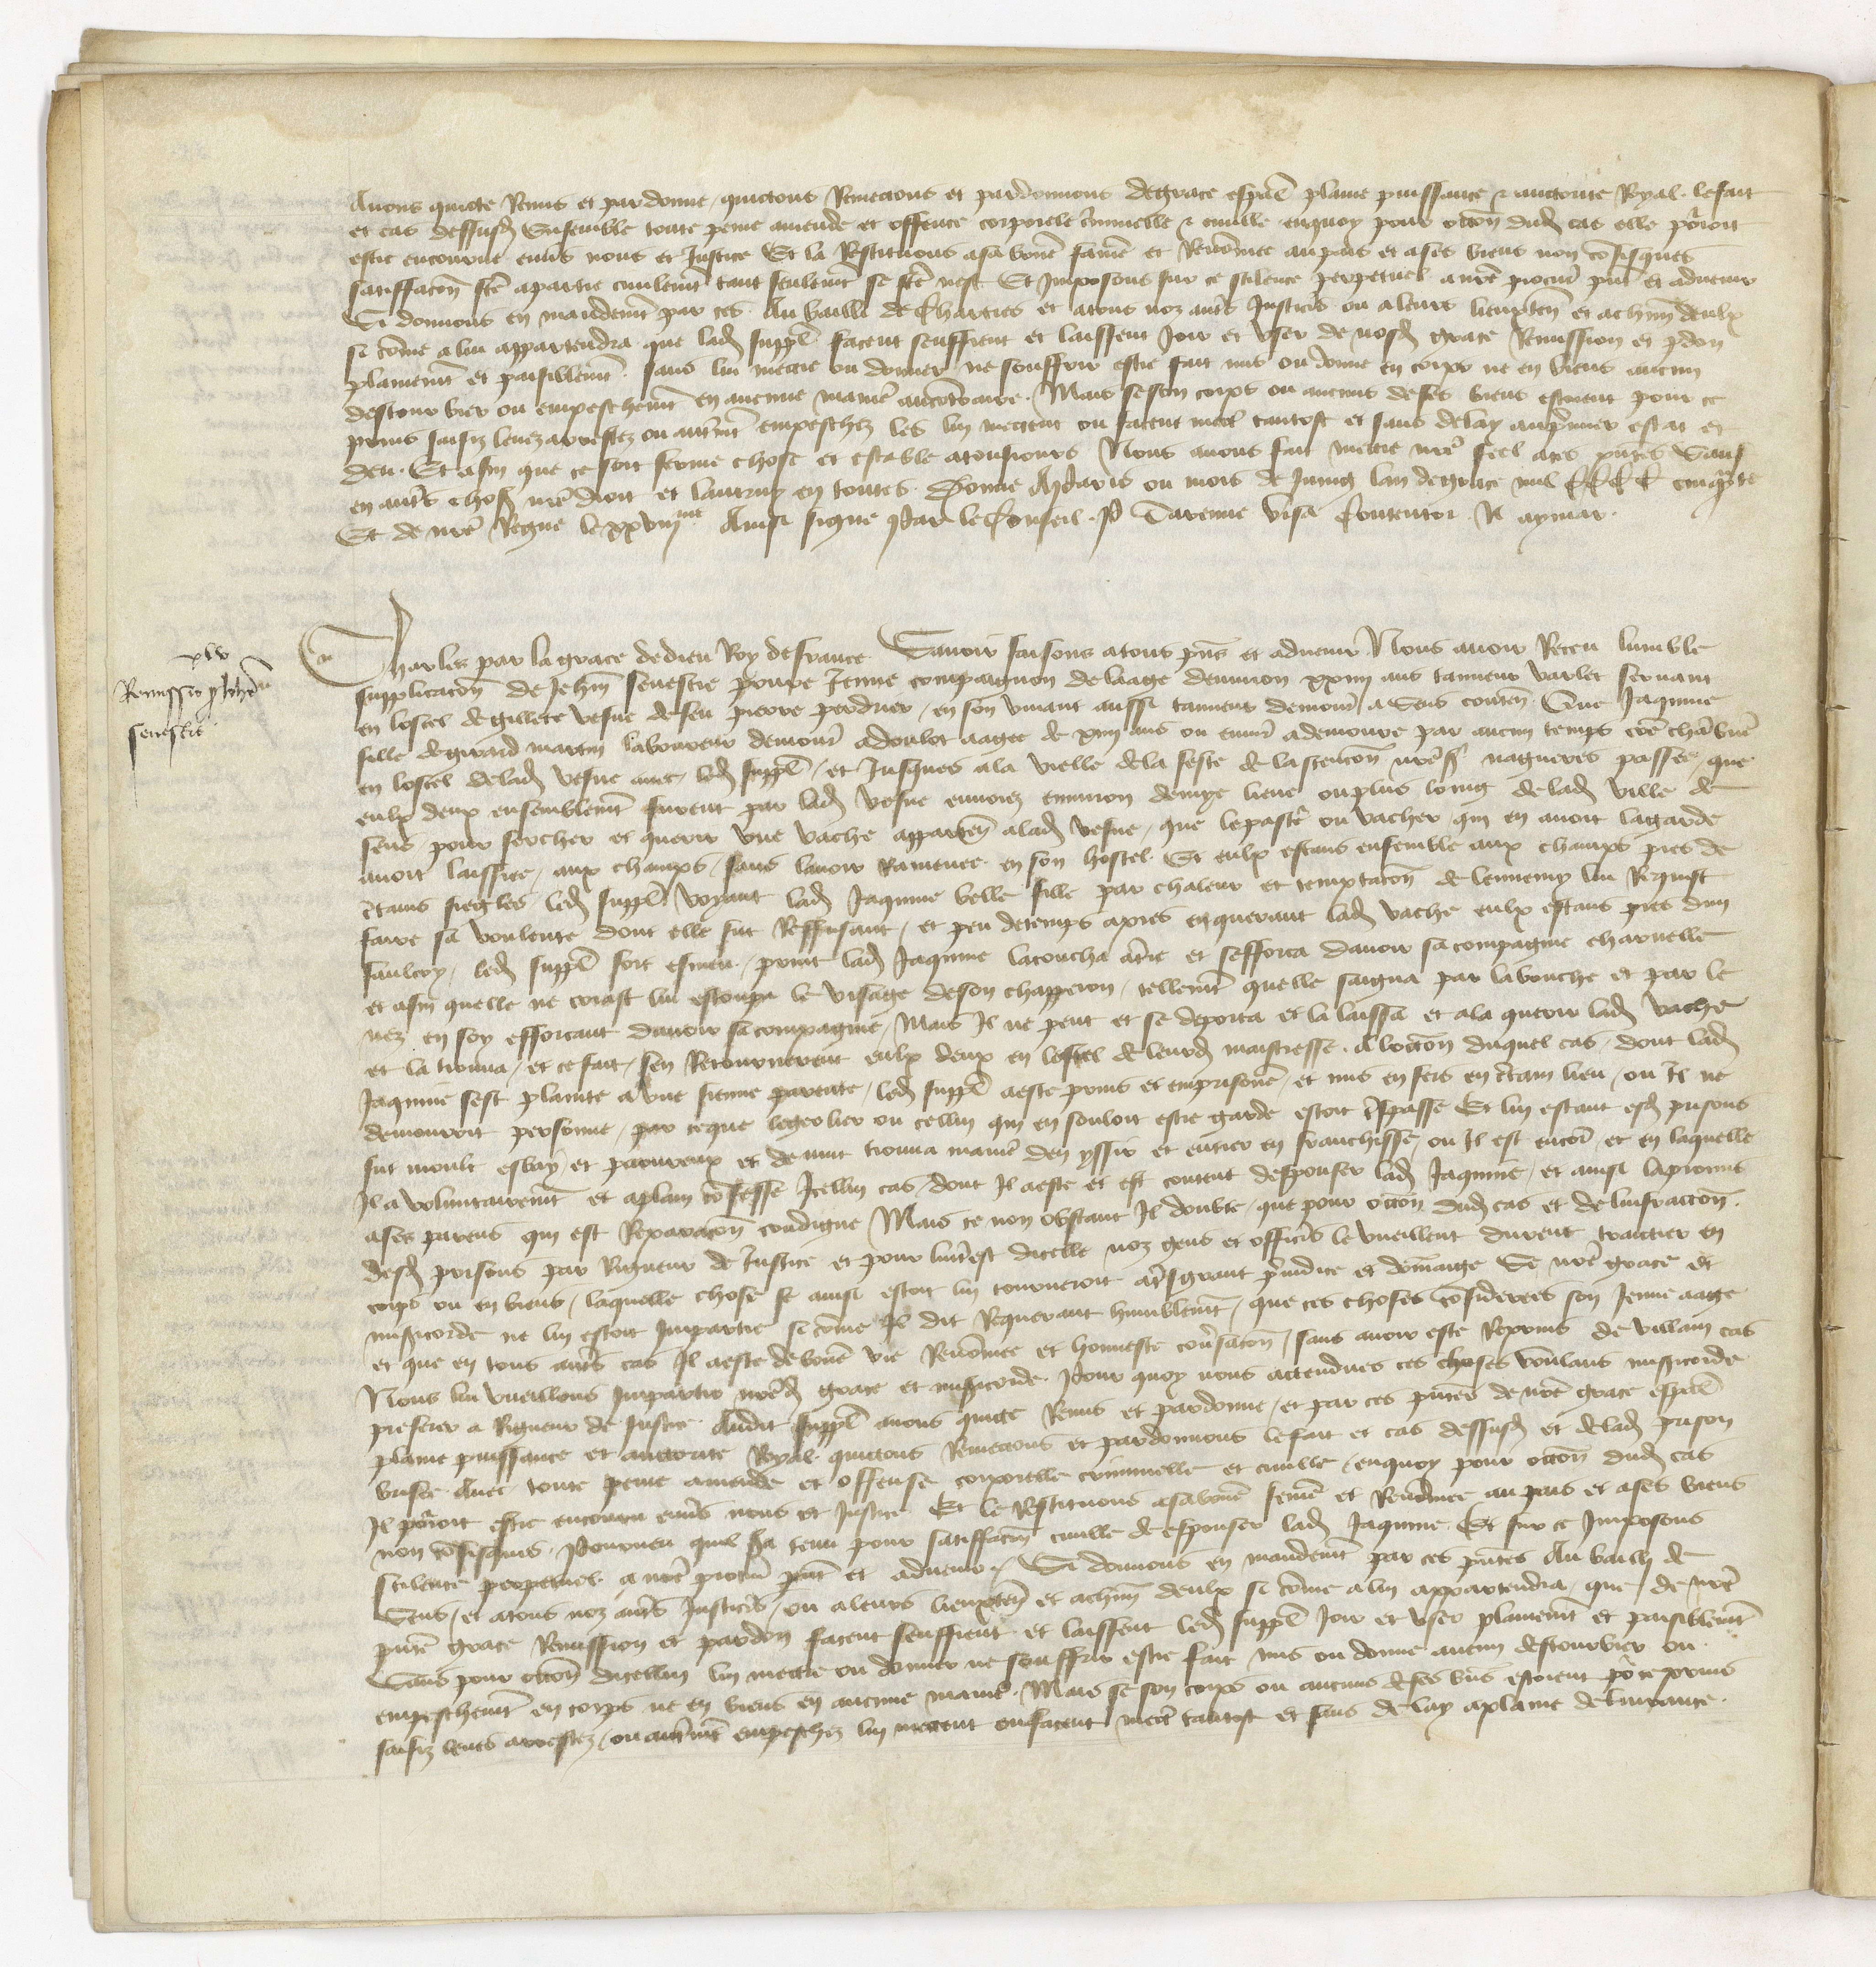 Avons quicte Remis et pardonne quictons Remectons et pardonnons de grace espal plaine puissance et auctorite Royal le fait
et cas dessusd Ensemble toute peine amende et offence corporele criminelle et civille enquoy pour occon dud cas elle porroit
estre encourue envs nous et Justice Et la Restituons a sa bonne fame et Renommee au pais et a ses biens non confisquez
satisffacon fce a partie civilemt tant seulemt se fce nest Et Imposons sur ce scilence perpetuel a nre procur pnt et advenir
Si donnons en mandemt par ces Au bailli de Chartres et a tous noz autrs Justiciers ou a leurs lieuxten et achun deulx
si comme a lui appartendra que lad suppl facent seuffrent et laissent Joir et user de nosd grace Remission et pdon
plainemt et paisiblemt sans lui mectre ou donner ne souffrir estre fait mis ou donne en corps ne en biens aucun
destourbier ou empeschemt en aucune maniere au contraire Mais se son corps ou aucuns de ses biens estoient pour ce
prins saisiz levez arrestez ou autremt empeschez les lui mectent ou facent mectre tantost et sans delay au premier estat et
deu Et afin que ce soit ferme chose et estable a tousiours Nous avons fait mectre nre seel a ces pntes Sauf
en autrs choses nre droit et lautruy en toutes Donne A Paris ou mois de Juing lan de grace mil CCCC cinqte
Et de nre Regne le xxviiime Ainsi signe Par le Conseil P Tarenne Visa Contentor N aymar
xlv
Remissio p Johe
senestre
Charles par la grace de dieu Roy de france Savoir faisons a tous pns et advenir Nous avoir Receu lumble
supplicacon de Jehan senestre povre Jeune compaignon de laage denviron xxiiii ans tanneur varlet servant
en lostel de gillete vesve de feu pierre perdrier en son vivant aussi tanneur demour a Sens conten Que Jaquine
fille de girard martin laboureur demour a aagee de xiiii ans ou envir a demoure par aucun temps chabriere
en lostel de lad vesve avec led suppl et Jusques a la vielle de la feste de lascencon nres nagueres passee que
eulx deux ensemblemt furent par lad vesve envoiez environ demye lieue ou plus loing de lad ville de
sens pour sercher et querir une vache apparten a lad vesve que le pastr ou vacher qui en avoit la garde
avoit laissiee aux champs sans lavoir Ramenee en son hostel Et eulx estans ensemble aux champs pres de
ctains siegles led suppl voyant lad Jaquine belle fille par chaleur et temptacon de lennemy lui Requist
faire sa voulente dont elle fut Reffusant et peu de temps apres en querant lad vache eulx estans pres dun
saulcoy led suppl fort esmeu print lad Jaquine la coucha a tre et sefforca davoir sa compagnie charnelle
et afin quelle ne criast lui estoupa le visage de son chapperon tellemt quelle saigna par la bouche et par le
nez en soy efforcant davoir sa compagnie Mais Il ne peut et se deporta et la laissa et ala querir lad vache
et la trouva et ce fait sen Retournerent eulx deux en lostel de leurd maistresse A loccon duquel cas dont lad
Jaquine sest plainte a une sienne parente led suppl a este prins et emprisonne et mis en fers en ctain lieu ou Il ne
demouroit personne par ce que le geolier ou cellui qui en souloit estre garde estoit trespasse Et lui estant esd prisons
fut moult esbay et paoureux et de nuit trouva maniere den yssir et entrer en franchisse ou Il est encor et en laquelle
Il a voluntairemt et a plain confesse Icellui cas dont Il a este et est content despouser lad Jaquine et ainsi la promis
a ses parens qui est Reparacon condigne Mais ce non obstant Il doubte que pour occon dud cas et de linfraccon
desd prisons par Rigueur de Justice et pour linterest dicelle noz gens et officrs le vueillent durent traictier en
corps ou en biens laquelle chose se ainsi estoit lui tourneroit a tresgrant preiudice et dommaige Se nre grace et
misericorde ne lui estoit Impartie si comme Il dit Requerant humblemt que ces choses considerees son Jeune aage
et que en tous autrs cas Il a este de bonne vie Renommee et honneste conversacon sans avoir este Reprins de villain cas
Nous lui vueillons Impartir nred grace et misericorde Pour quoy nous attendues ces choses voulans misericorde
preferer a Rigueur de Justice Audit suppl avons quicte Remis et pardonne et par ces pntes de nre grace espal
plaine puissance et auctorite Royal quictons Remectons et pardonnons le fait et cas dessusd et de lad prison
brisee Avec toute peine amende et offense corporelle criminelle et civille enquoy pour occon dud cas
Il porroit estre encouru envs nous et Justice Et le Restituons a sa bonne feme et Renommee au pais et a ses biens
non confisques Pourveu quil sa tenu pour satisfacon civille de espouser lad Jaquine Et sur ce Imposons
scilence perpetuel a nre procur pnt et advenir Si donnons en mandemt par ces pntes Au bailli de
Sens et a tous noz autrs Justiciers ou a leurs lieuxten et achun deulx si comme a lui appartendra que de nre
pnte grace Remission et pardon facent seuffrent et laissent led suppl Joir et user plainemt et paisiblemt
Sans pour occon dicellui lui mectre ou donner ne souffrir estre fait mis ou donne aucun destourbier ou
empeschemt en corps ne en biens en aucune manie Mais se son corps ou aucuns de ses biens estoient por ce prins
saisiz levez arrestez ou autremt empeschez lui mectent ou facent mectre tantost et sans delay a plaine delivrance